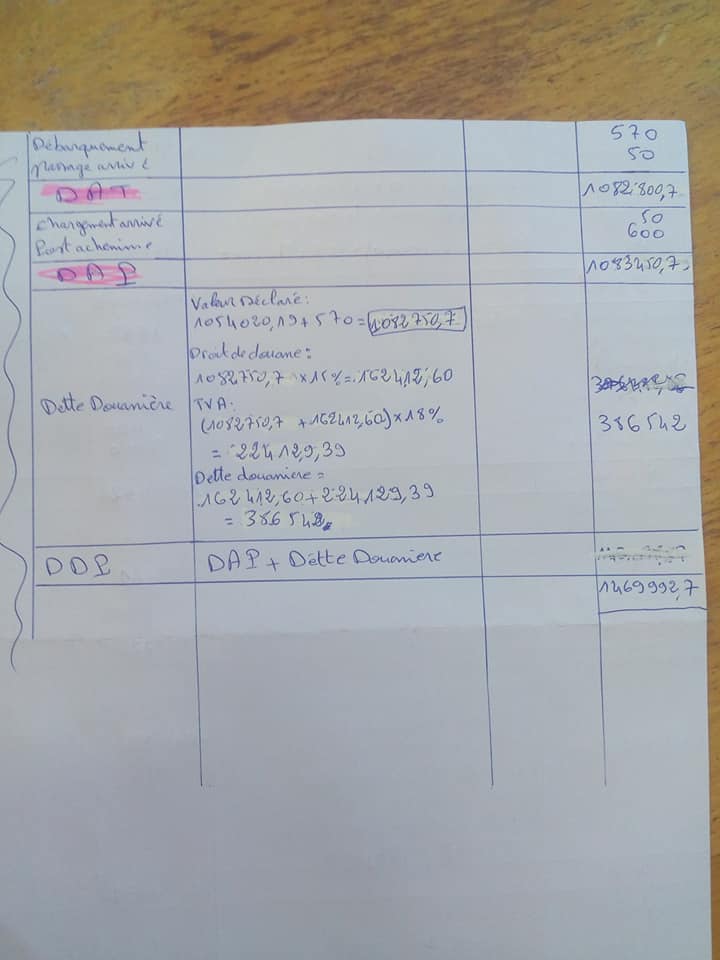 Débarquement 570
Passage arrivé 50
DAT 1082800,7
Chargement arrivé 50
Post achemine 600
DAP 1083450,7
Valeur Déclaré:
1054020,19 + 570 = 1082750,7
Droit de douane:
1082750,7 x 15% = 162412,60
TVA:
Dette Douanière (1082750,7 + 162412,60) x 18% 386542
= 224129,39
Dette douaniere =
162412,60 + 224129,39
= 386542
DDP DAP + Dette Douaniere
1469992,7